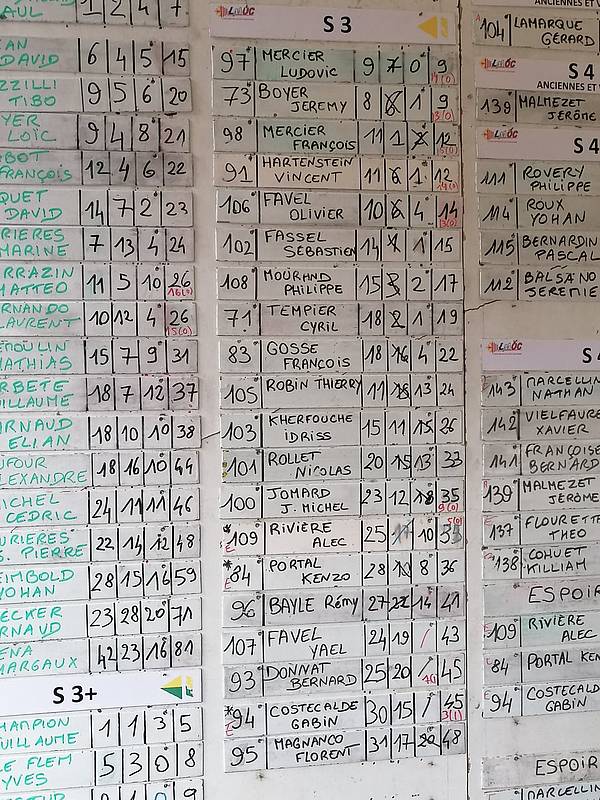 AUL 1 2 4 7
AN
DAVID 6 4 5 15
ZZILLI
TIBO 9 5 6 20
YER
LOÏC 9 4 8 21
BOT
FRANÇOIS 12 4 6 22
QUET
DAVID 14 7 2 23
RIERES
MARINE 7 13 4 24
RRAZIN
MATTEO 11 5 10 26
RNANDO
LAURENT 10 12 4 26
MOULIN
MATHIAS 15 7 9 31
RBETE
ILLAUME 18 7 12 37
ARNAUD
ELIAN 18 10 10 38
UFOUR
LEXANDRE 18 16 10 44
MICHEL
CEDRIC 24 11 11 46
URIERES
S. PIERRE 22 14 12 48
EIMBOLD
YOHAN 28 15 16 59
ECKER
RNAUD 23 28 20 71
EÑA
MARGAUX 42 23 16 81
S 3+
HAMPION
UILLAUME 1 1 3 5
LE FLEM
YVES 5 3 0 8
S 3
97 MERCIER
LUDOVIC 9 7 0 9
73 BOYER
JEREMY 8 6 1 9
98 MERCIER
FRANÇOIS 11 1 2 12
91 HARTENSTEIN
VINCENT 11 6 1 12
106 FAVEL
OLIVIER 10 6 4 14
102 FASSEL
SÉBASTIEN 14 4 1 15
108 MOURAND
PHILIPPE 15 3 2 17
71 TEMPIER
CYRIL 18 2 1 19
83 GOSSE
FRANÇOIS 18 16 4 22
105 ROBIN THIERRY 11 18 13 24
103 KHERFOUCHE
IDRISS 15 11 15 26
101 ROLLET
NICOLAS 20 15 13 33
100 JOMARD
J. MICHEL 23 12 18 35
109 RIVIÈRE
ALEC 25 17 10 35
84 PORTAL
KENZO 28 10 8 36
96 BAYLE Rémy 27 22 14 41
107 FAVEL
YAEL 24 19 / 43
93 DONNAT
BERNARD 25 20 / 45
94 COSTECALDE
GABIN 30 15 / 45
95 MAGNANCO
FLORENT 31 17 20 48
ANCIENNES ET V
104 LAMARQUE
GÉRARD
S 4
ANCIENNES ET V
139 MALMEZET
JÉRÔME
S 4
111 ROVERY
PHILIPPE
114 ROUX
YOHAN
115 BERNARDIN
PASCAL
112 BALSANO
JEREMIE
S 4
143 MARCELLIN
NATHAN
142 VIELFAURE
XAVIER
141 FRANÇOISE
BERNARD
139 MALMEZET
JEROME
137 FLOURETTE
THEO
138 COHUET
KILLIAM
ESPOIR
109 RIVIÈRE
ALEC
84 PORTAL KEN
94 COSTECALD
GABIN
ESPOIR
MARCELLIN